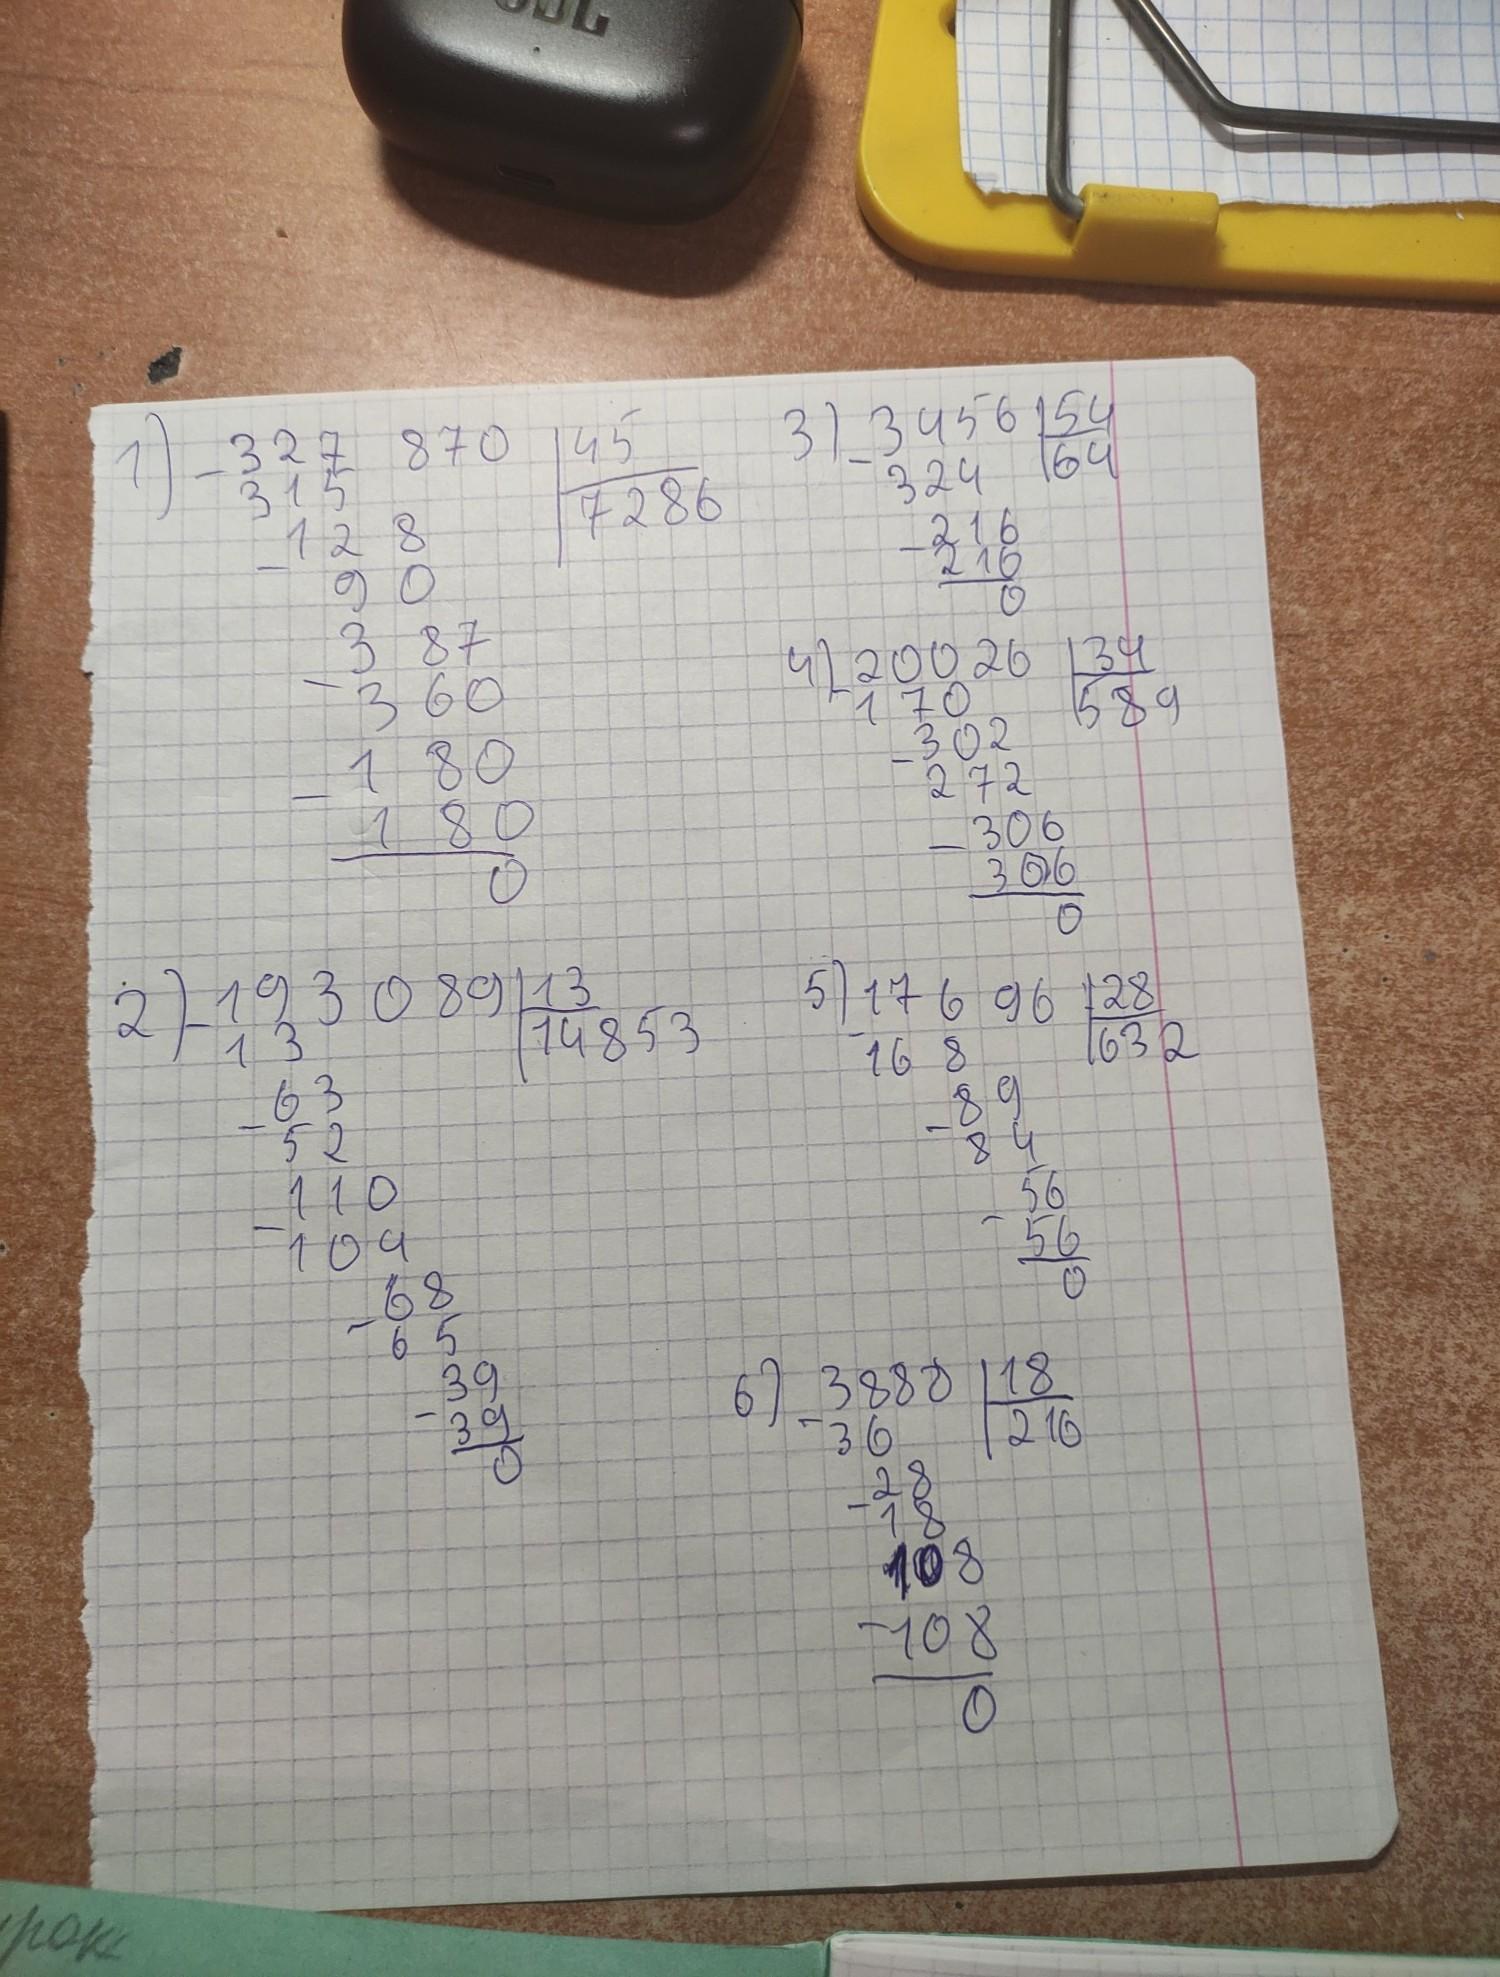 JBL
1) - 327 870 | 45
315 | 7286
- 128
90
- 387
360
- 180
180
0
2) - 193 089 | 13
13 | 14853
- 63
52
- 110
104
- 68
65
- 39
39
0
3) - 3456 | 54
324 | 64
- 216
216
0
4) - 20026 | 34
170 | 589
- 302
272
- 306
306
0
5) - 17696 | 28
168 | 632
- 89
84
- 56
56
0
6) - 3888 | 18
36 | 216
- 28
18
108
- 108
0